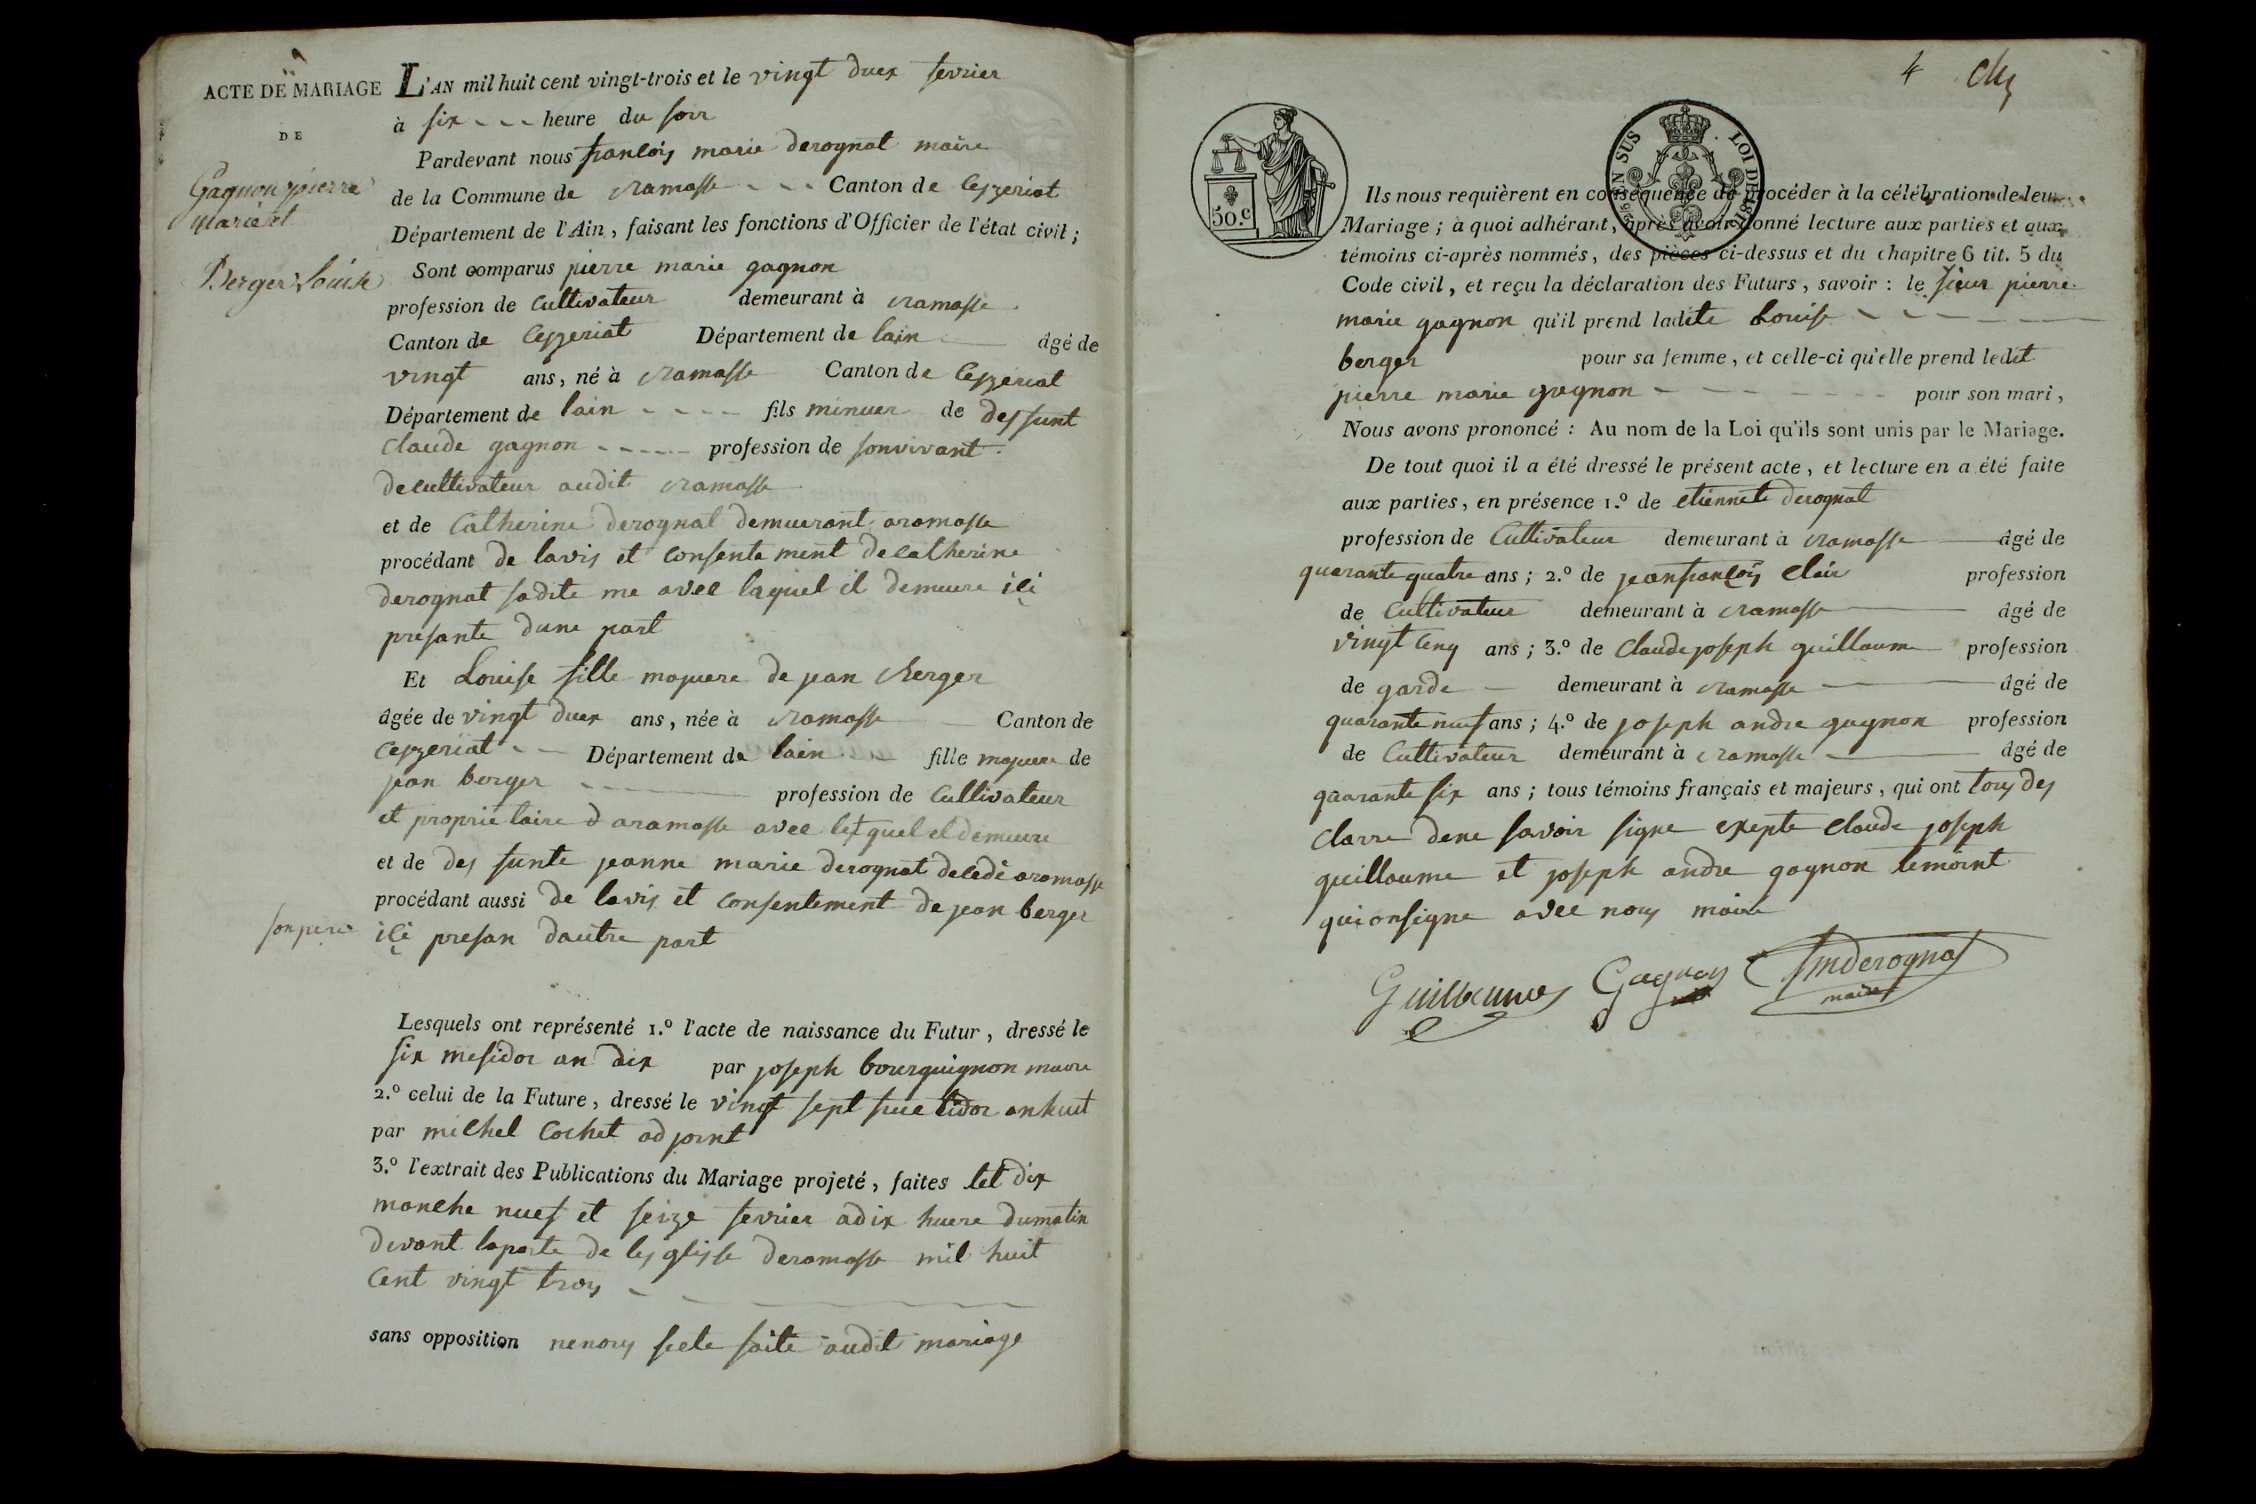 ACTE DE MARIAGE
DE
Gagnon pierre
marie et
Berger Louise
L'AN mil huit cent vingt-trois et le vingt duex fevrier
à six heure du soir
Pardevant nous francois marie derognat maire
de la Commune de ramasse Canton de Ceyzeriat
Département de l'Ain, faisant les fonctions d'Officier de l'état civil;
Sont comparus pierre marie gagnon
profession de Cultivateur demeurant à ramasse
Canton de Ceyzeriat Département de lain âgé de
vingt ans, né à ramasse Canton de Ceyzeriat
Département de lain fils minuer de desfunt
Claude gagnon profession de sonvivant
decultivateur audit ramasse
et de Catherine derognat demeurant aramasse
procédant de lavis et consente ment de catherine
derognat sadite me avec laquel il demeure ici
presante dune part
Et Louise fille majuere de jean Berger
âgée de vingt duex ans, née à ramasse Canton de
Ceyzeriat Département de lain fille majuere de
jean berger profession de Cultivateur
et proprietaire d aramasse avec lequel el demeure
et de desfunte jeanne marie derognat decedé aramasse
procédant aussi de lavis et consentement de jean berger
son pere
ici presan dautre part
Lesquels ont représenté 1.º l'acte de naissance du Futur, dressé le
six mesidor an dix par joseph bourguignon maire
2.º celui de la Future, dressé le vingt sept fructidor anhuit
par michel Cochet adjoint
3.º l'extrait des Publications du Mariage projeté, faites let dix
manche nuef et seize fevrier adix huere dumatin
devant laporte de lesglisse deramasse mil huit
Cent vingt troys
sans opposition nenous sete faite audit mariage
4
50.c
EN SUS
LOI DE 1816
Ils nous requièrent en conséquence de procéder à la célébration de leur
Mariage; à quoi adhérant, après avoir donné lecture aux parties et aux
témoins ci-après nommés, des pièces ci-dessus et du chapitre 6 tit. 5 du
Code civil, et reçu la déclaration des Futurs, savoir: le sieur pierre
marie gagnon qu'il prend ladite Louise
berger pour sa femme, et celle-ci qu'elle prend ledit
pierre marie gagnon pour son mari,
Nous avons prononcé: Au nom de la Loi qu'ils sont unis par le Mariage.
De tout quoi il a été dressé le présent acte, et lecture en a été faite
aux parties, en présence 1.º de etiennete derognat
profession de Cultivateur demeurant à ramasse âgé de
quarante quatre ans; 2.º de jean francois Clair profession
de Cultivateur demeurant à ramasse âgé de
vingt cenq ans; 3.º de Claude joseph guillaume profession
de garde demeurant à ramasse âgé de
quarante nuef ans; 4.º de joseph andre gagnon profession
de Cultivateur demeurant à ramasse âgé de
quarante six ans; tous témoins français et majeurs, qui ont tous des
clarre dene savoir signe exepte Claude joseph
guillaume et joseph andre gagnon temoint
qui onsigne avec nous maire
Guillaume Gagnon fmderognat
maire